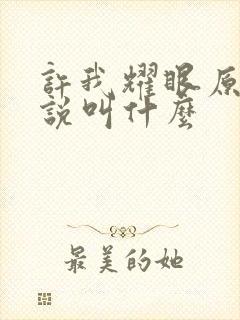 許我耀眼原
說叫什麼
最美的她